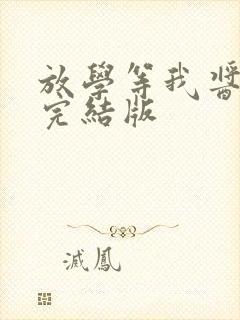 放學等我醬
完結版
滅鳳